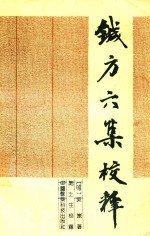 鍼方六集校釋
中國醫藥科技出版社